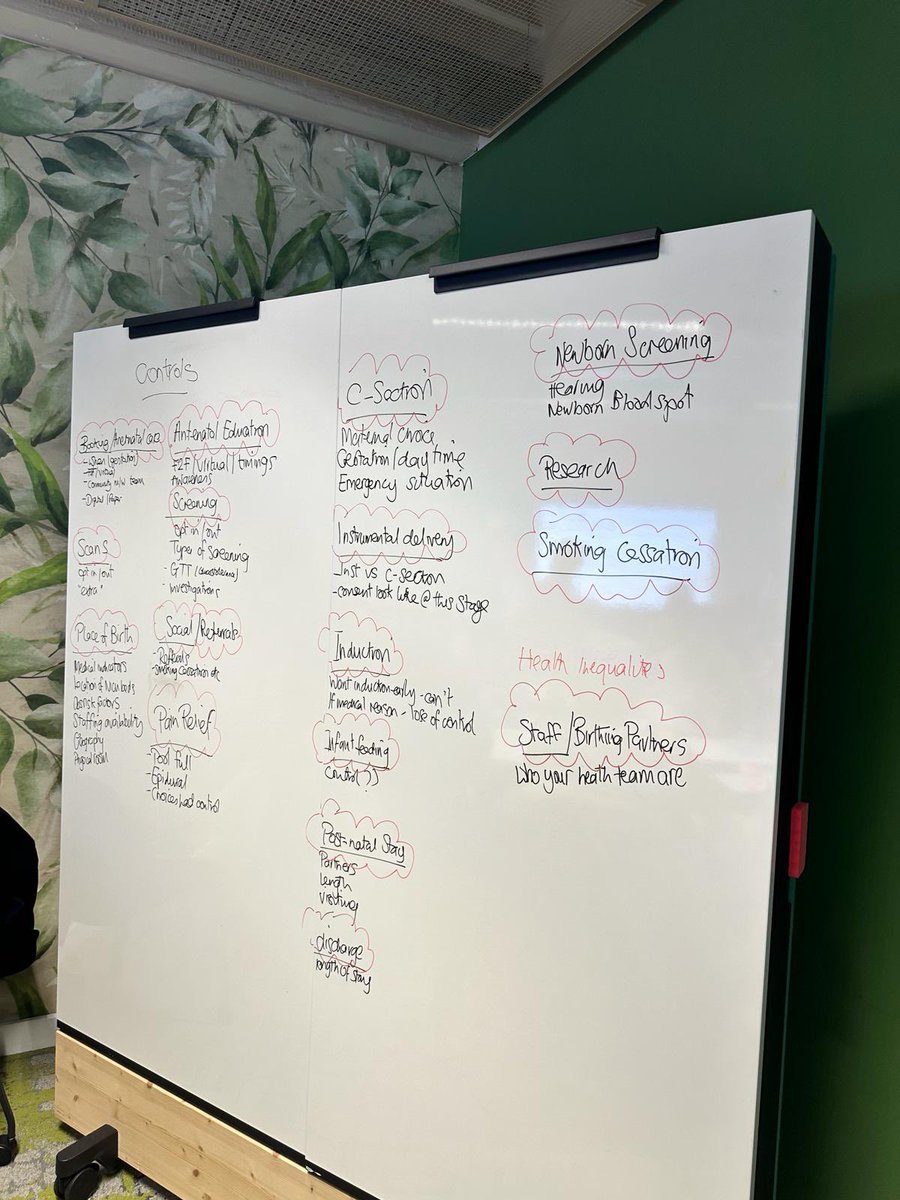 Controls
Booking/Antenatal care
- when (gestation)
- F2F/Virtual
- Community m/w team
- Digital/Paper
Scans
opt in/out
"extra"
Place of Birth
Medical indicators
Location of
Obs risk factors
Staffing availability
Geography
Physical room
Antenatal Education
F2F/Virtual/timings
Awareness
Screening
opt in/out
Types of screening
- GTT
- Investigations
Social/Referrals
- Referrals
- Smoking cessation etc
Pain Relief
- Pool full
- Epidural
- Choices had control
C-Section
Maternal choice
Gestation/day time
Emergency situation
Instrumental delivery
- Inst vs C-section
- consent look like @ this stage
Induction
Want induction early - can't
If medical reason - lose of control
Infant feeding
Control(?)
Post-natal Stay
Partners
Length
Visiting
discharge
length of stay
Newborn Screening
Hearing
Newborn Blood spot
Research
Smoking Cessation
Health Inequalities
Staff/Birthing Partners
Who your health team are